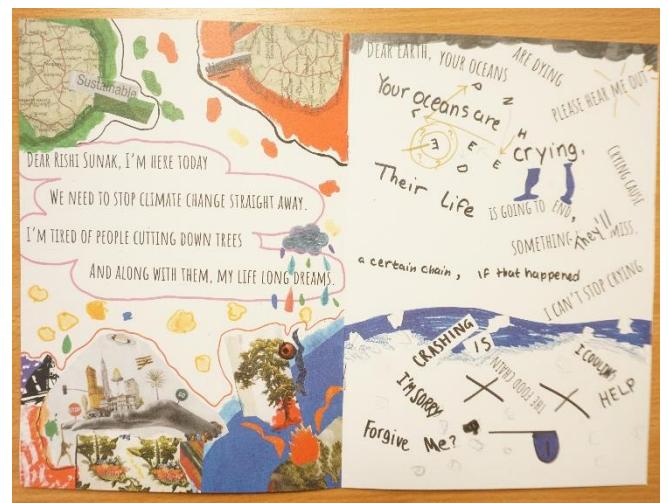 Sustainable
DEAR RISHI SUNAK, I'M HERE TODAY
WE NEED TO STOP CLIMATE CHANGE STRAIGHT AWAY.
I'M TIRED OF PEOPLE CUTTING DOWN TREES
AND ALONG WITH THEM, MY LIFE LONG DREAMS.
STOP
GO
DEAR EARTH, YOUR OCEANS
ARE DYING
PLEASE HEAR ME OUT
Your oceans are
crying,
CRYING CAUSE
Their Life
IS GOING TO END,
SOMETHING They'll MISS.
a certain chain, if that happened
I CAN'T STOP CRYING
CRASHING
IS
THE FOOD CHAIN
I'M SORRY
I COULDN'T
HELP
Forgive Me?